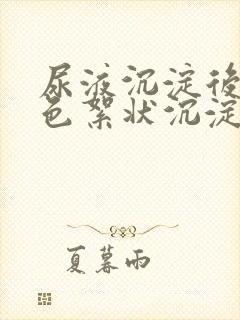 尿液沉淀後
色絮狀沉淀
夏暮雨